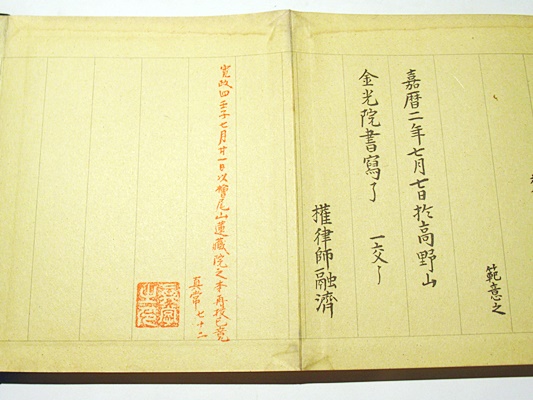 範意之
嘉暦二年七月七日於高野山
金光院書寫了 一交了
權律師融濟
寛政四壬子七月廿一日以鷲尾山蓮藏院之本再挍已竟
真常七十二